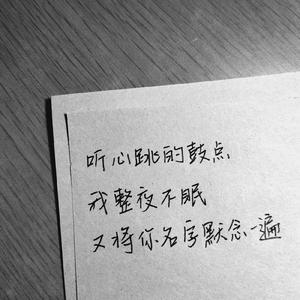 听心跳的鼓点
我整夜不眠
又将你名字默念一遍